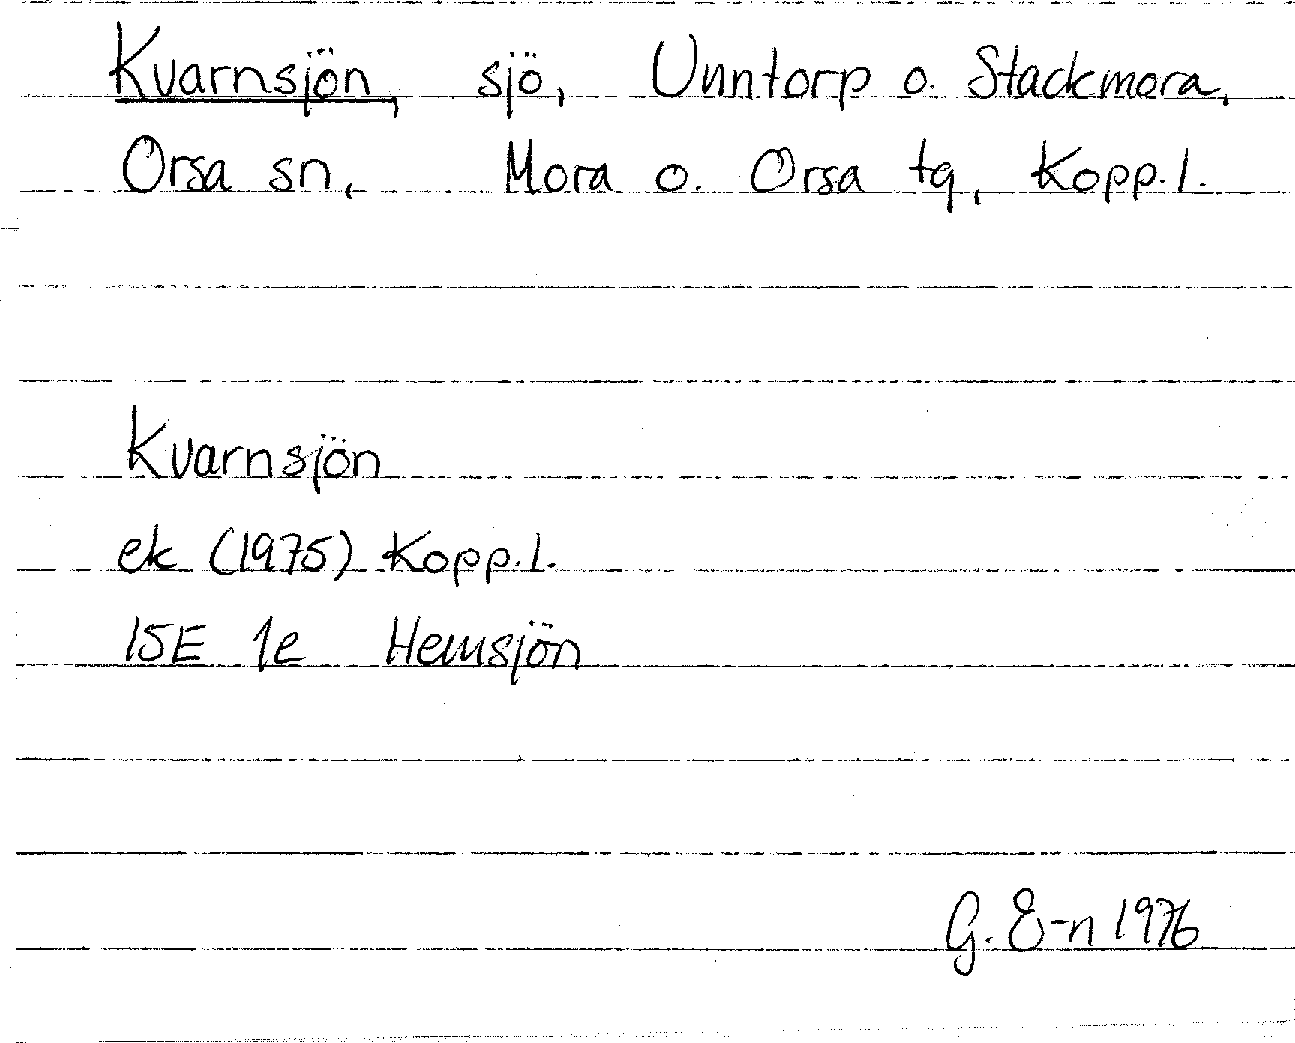 Kvarnsjön, sjö, Unntorp o. Stackmora,
Orsa sn, Mora o. Orsa tg, Kopp.l.
Kvarnsjön
ek (1975) Kopp.l.
15E 1e Hemsjön
G. E-n 1976